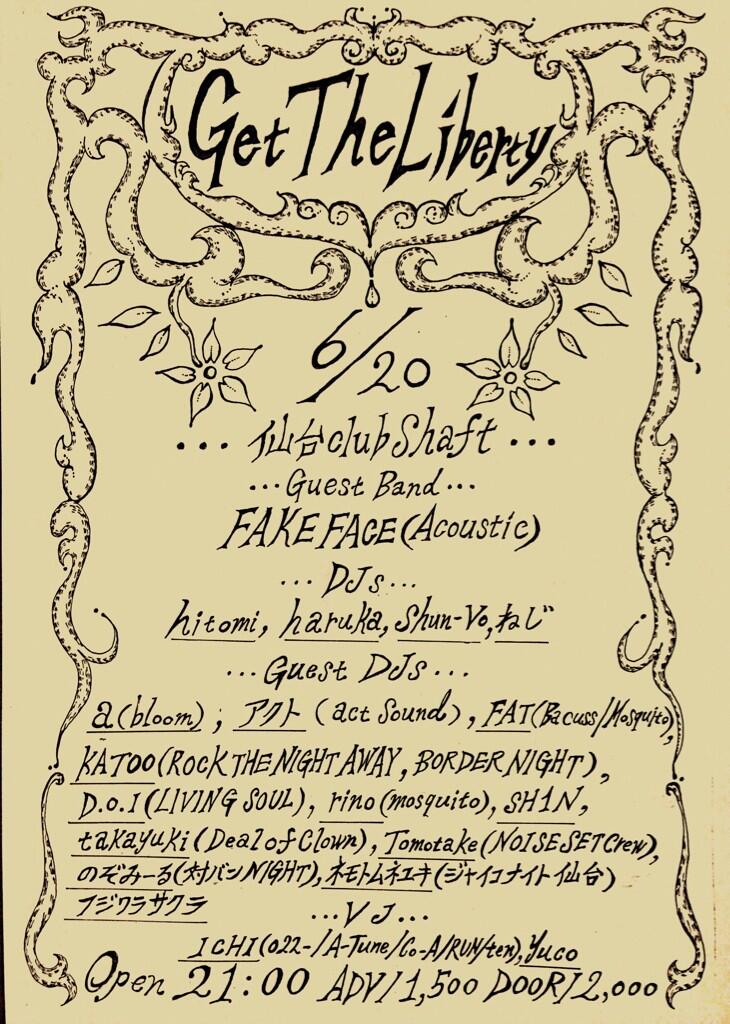 Get The Liberty
6/20
... 仙台club Shaft ...
... Guest Band ...
FAKE FACE (Acoustic)
... DJs ...
hitomi, haruka, Shun-Vo, ねじ
... Guest DJs ...
a (bloom), アクト (act sound), FAT (Bacuss/Mosquito),
KATOO (ROCK THE NIGHT AWAY, BORDER NIGHT),
D.O.I (LIVING SOUL), rino (mosquito), SH1N,
takayuki (Deal of Clown), Tomotake (NOISE SET Crew),
のぞみーる (対バンNIGHT), ネモトムネユキ (ジャイコナイト仙台)
フジワラサクラ
... VJ ...
ICHI (022-/A-Tune/Co-A/RUN/ten), Yuco
Open 21:00 ADV/1,500 DOOR/2,000